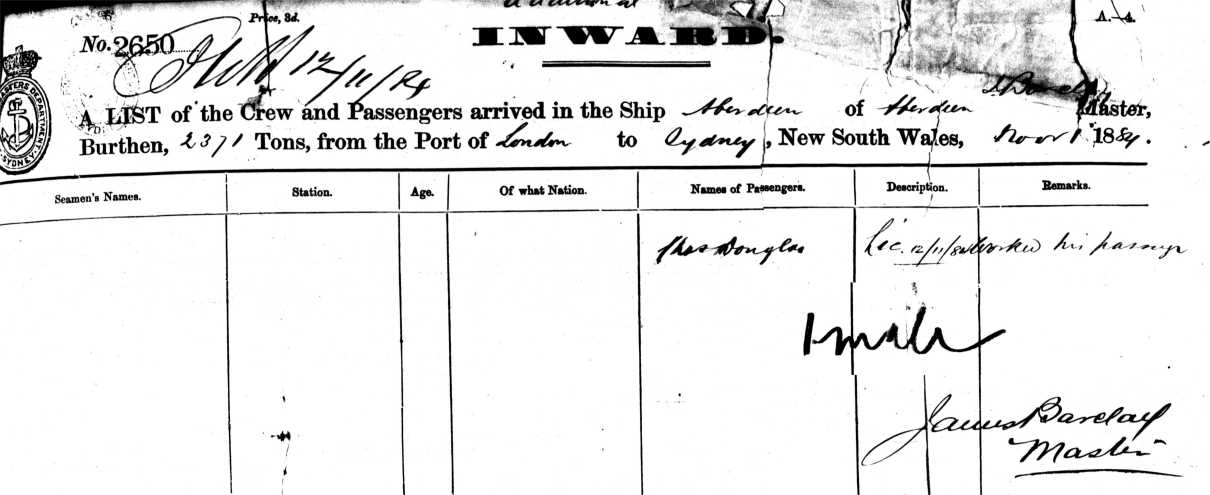 additional
Price, 3d.
A.—4.
No. 2650
INWARD.
12/11/84
A LIST of the Crew and Passengers arrived in the Ship Aberdeen of Aberdeen J. Barclay Master,
Burthen, 2371 Tons, from the Port of London to Sydney, New South Wales, Novr 1 1884.
MASTERS DEPARTMENT SYDNEY
Seamen's Names. Station. Age. Of what Nation. Names of Passengers. Description. Remarks.
Thos Douglas Lic. 12/11/84 Worked his passage
1 male
James Barclay
Master